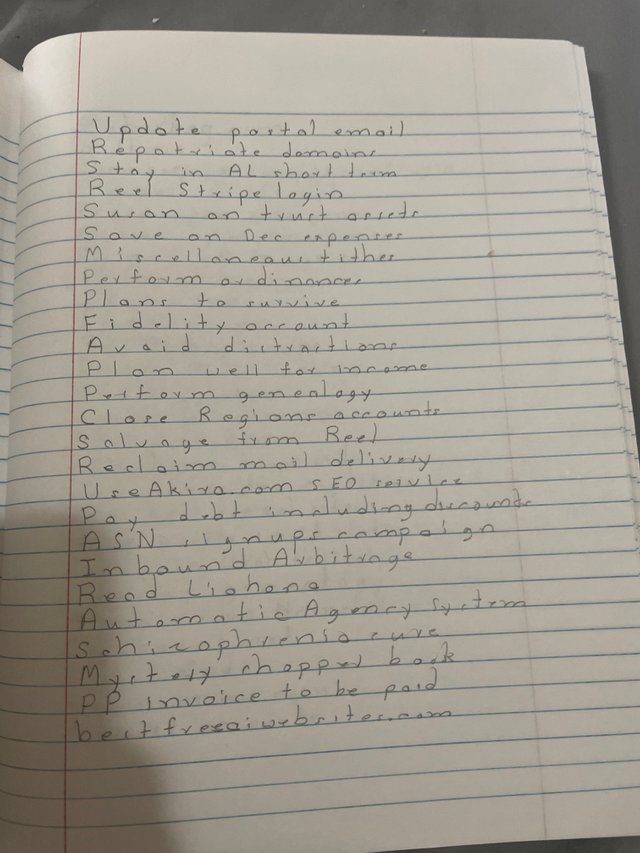 Update postal email
Repatriate domains
Stay in AL short term
Reel Stripe login
Susan on trust assets
Save on Dec expenses
Miscellaneous tithes
Perform ordinances
Plans to survive
Fidelity account
Avoid distractions
Plan well for income
Perform genealogy
Close Regions accounts
Salvage from Reel
Reclaim mail delivery
Use Akira.com SEO service
Pay debt including discounts
ASN signups campaign
Inbound Arbitrage
Read Liahona
Automatic Agency system
Schizophrenia cure
Mystery chapel book
PP invoice to be paid
bestfreeaiwebsites.com